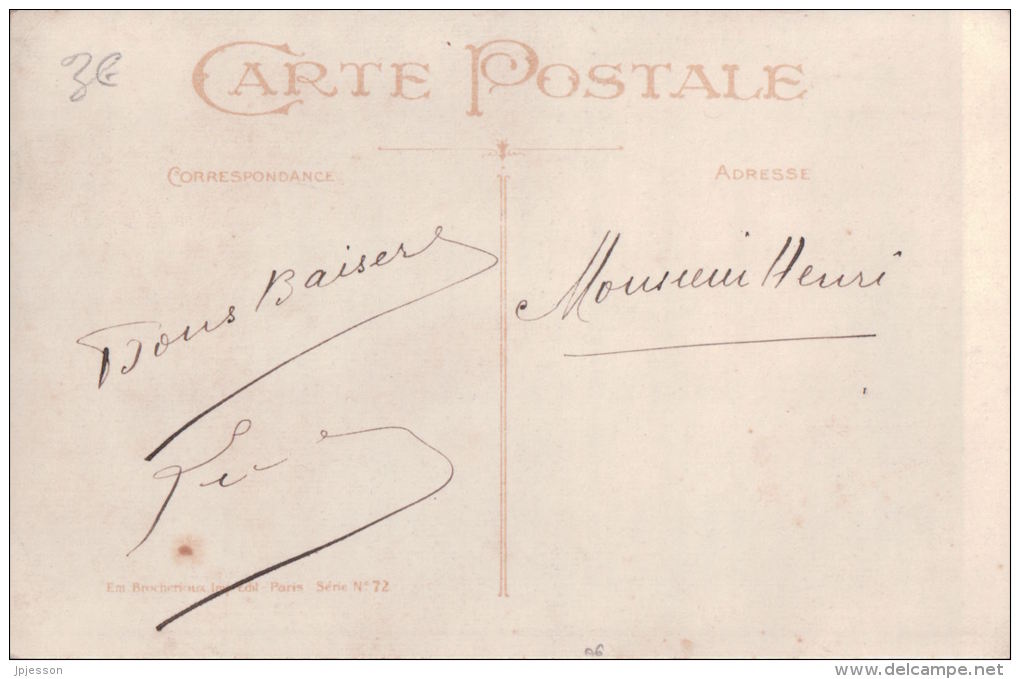 3€
CARTE POSTALE
CORRESPONDANCE
ADRESSE
Bons Baisers
Monsieur Henri
Em. Brocherioux Imp-Edit-Paris Série N° 72
96
jpjesson
www.delcampe.net